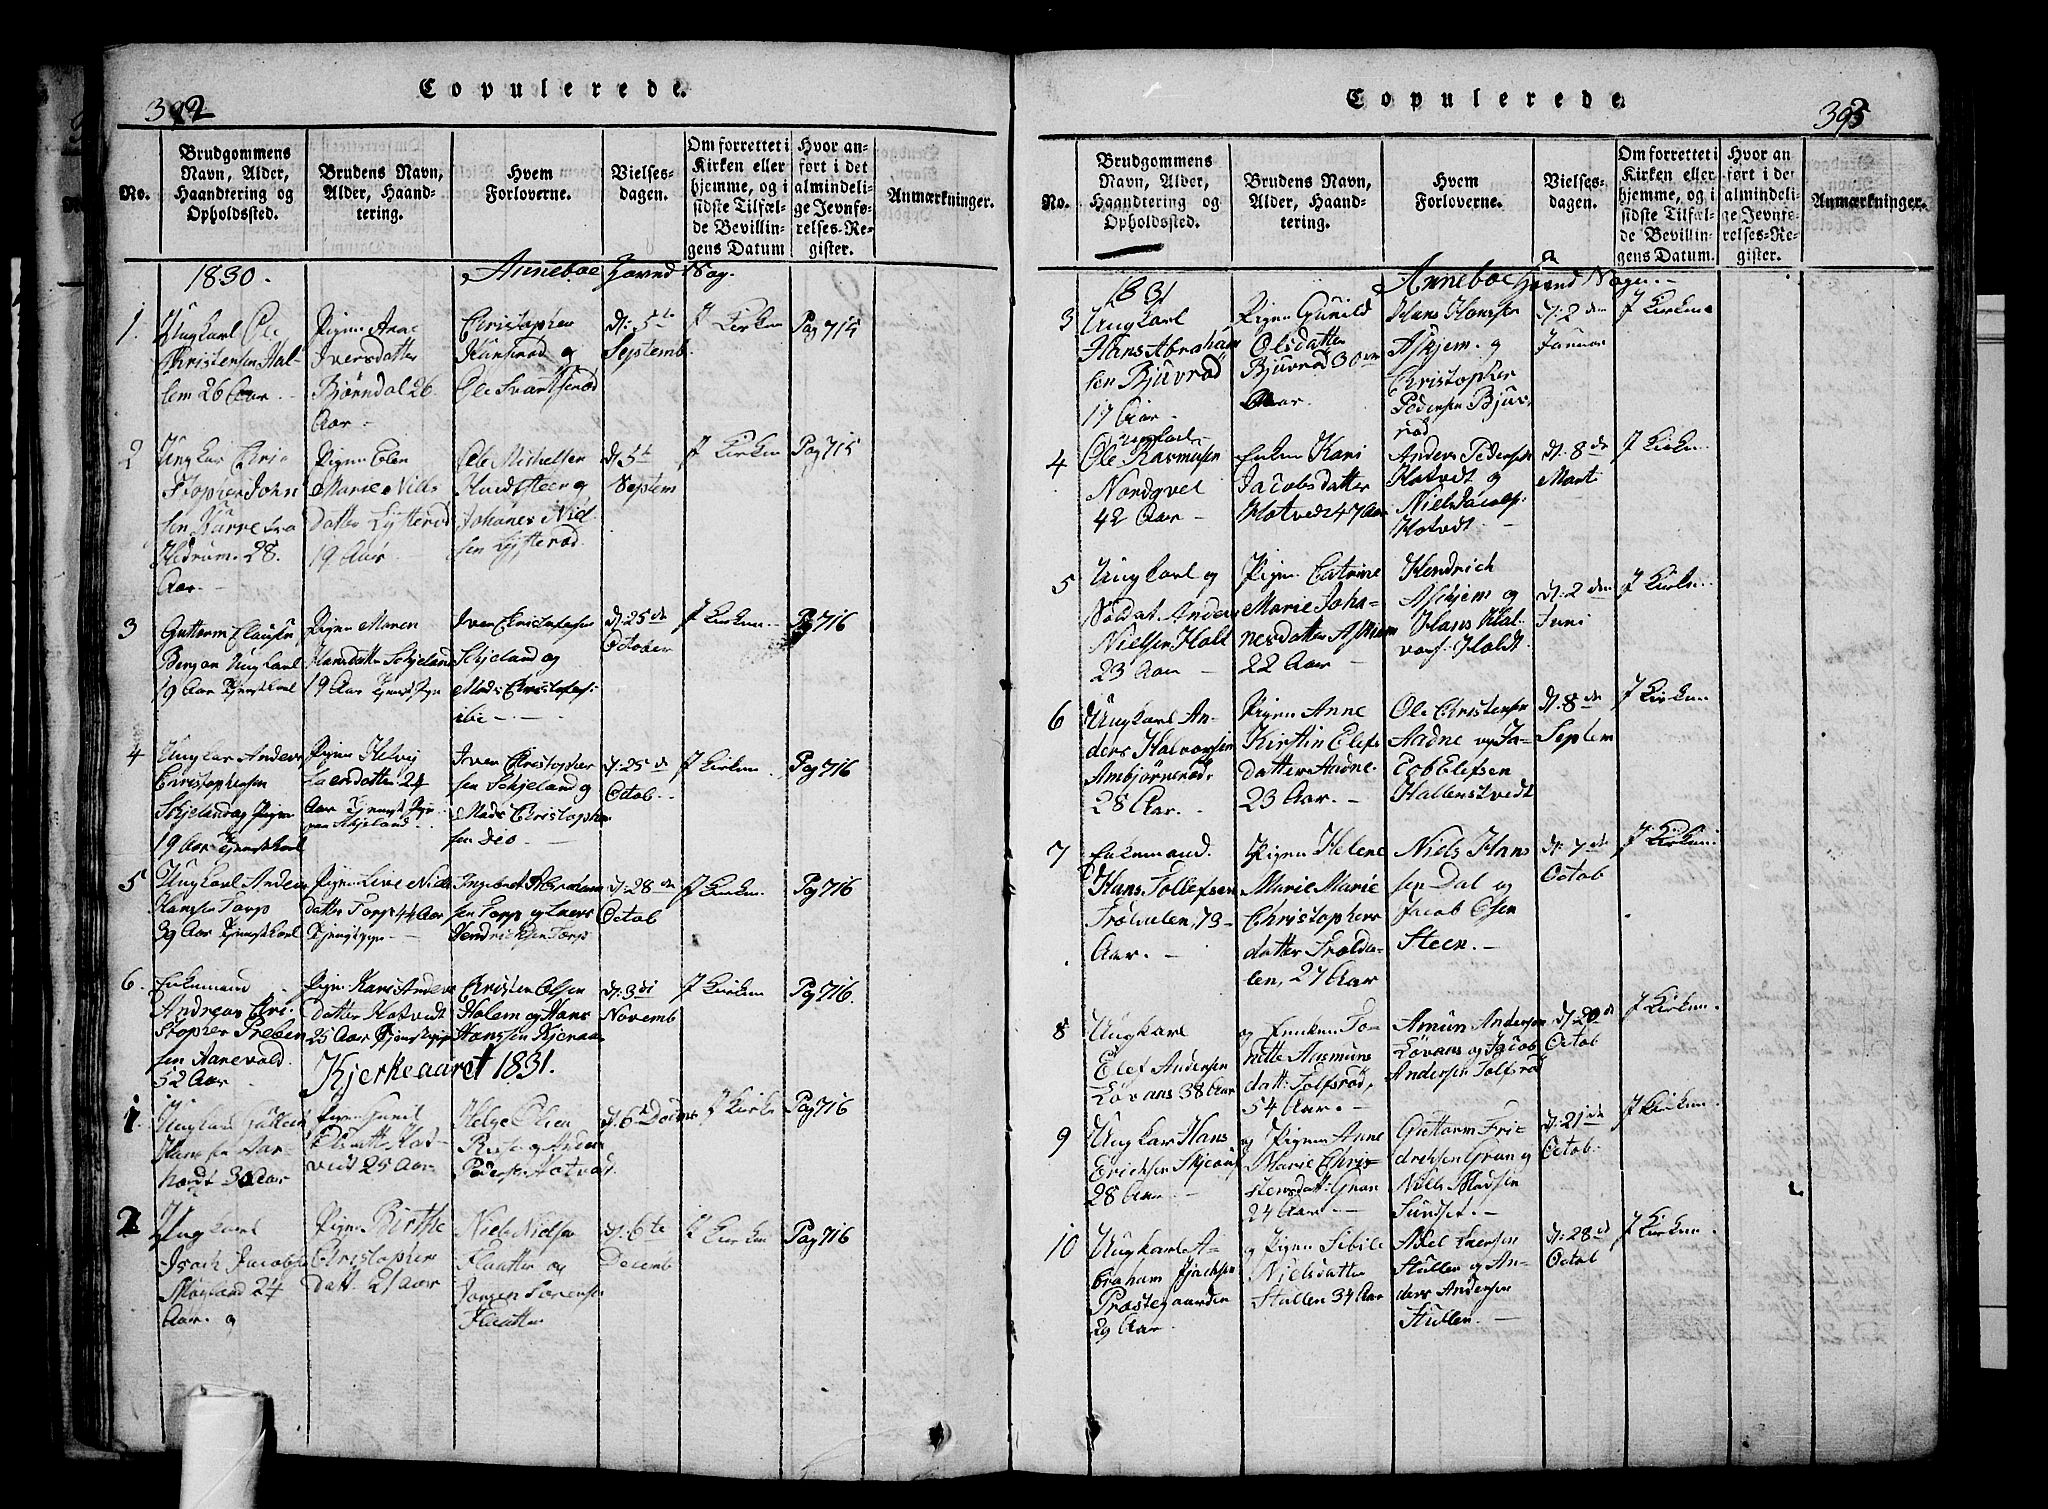 Copulerede.
392
No.
Brudgommens
Navn, Alder,
Haandtering og
Opholdssted.
Brudens Navn,
Alder, Haand-
tering.
Hvem
Forloverne.
Vielses-
dagen.
Om forrettet i
Kirken eller
hjemme, og i
sidste Tilfæl-
de Bevillin-
gens Datum
Hvor an-
ført i det
almindeli-
ge Jevnfø-
relses-Re-
gister.
Anmærkninger.
1830.
Anneboe Hovnd Sog.
1.
Ungkarl Ole
Christensen Hal-
sem 26 Aar.
Pigen Anne
Iversdatter
Bjørndal 26
Aar
Christopher
Hanserød og
Ole Svartserød
d: 5te
Septemb
J Kirken
Pag 714
2
Ungkar Chri-
stopher John
sen Varre fra
Hedrum. 28.
Aar.
Pigen Elen
Marie Niels
datter Lytterød
19 Aar.
Ole Michelsen
Johanes Niel-
sen Lytterød
d: 5te
Septem
J Kirken
Pag 715
3
Guttorm Clausen
Bergan Ungkarl
19 Aar Tjenestkarl
Pigen Maren
Hansdatter Schjeland
19 Aar Tjenest Pige
Iver Christophersen
Schjeland og
Mads Christophers:
ibi
d: 25de
October
J Kirken.
Pag 716
4
Ungkar Anders
Christophersen
19 Aar Tjenestkarl
Pigen Helvig
Larsdatter 24
Aar Tjenest Pige
paa Schjeland
Iver Christopher
sen Schjeland og
Mads Christopher
sen dito
d: 25de
Octob.
J Kirken
Pag 716
5
Ungkarl Anders
Hansen Torp
39 Aar Tjenestkarl
Pigen Live Niels
datter Torp 44 Aar
Tjenestpige
Ingebret Abraham
sen Torp og Lars
Hendrichsen Torp
d: 28de
Octob
J Kirken.
Pag 716
6.
Enkemand
Andreas Chri-
stopher Preben
sen Aanevold
52 Aar
Pigen Kari Anders
datter Hotvedt
25 Aar Tjenestepige
Christen Olsen
Holem og Hans
Hanssen Kjenaas
d: 3di
Novemb
J Kirken
Pag 716.
Kjerkeaaret 1831.
1.
Hansen Aar-
holdt 30 Aar
Pigen Gunil
Olsdatter Hot-
vedt 25 Aar
Helge Olsen
Pedersen Hotved.
d: 6te Decmb
J Kirke
Pag 716
2
Ungkarl
Isach Jacobsen
Skogland 24
Aar. og
Pigen Birthe
Christopher
datt. 21 aar
Niels Nielsen
Flaatten og
Jørgen Sørensen
Flaatten
d: 6te
Decemb
J Kirken
Pag 716
Copulerede.
393
No.
Brudgommens
Navn, Alder,
Haandtering og
Opholdssted.
Brudens Navn,
Alder, Haand-
tering.
Hvem
Forloverne.
Vielses-
dagen.
Om forrettet i
Kirken eller
hjemme, og i
sidste Tilfæl-
de Bevillin-
gens Datum.
Hvor an
ført i det
almindeli-
ge Jevnfø-
relses-Re-
gister.
Anmærkninger.
1831
Anneboe Hovnd Sogn.
3
Ungkarl
Hans Abraham
sen Bjuvrød
17 Aar
Pigen Gunild
Olsdatter
Bjuvrød 30
Aar.
Hans Hansen
Askjem og
Christopher
Pedersen Bjuv-
rød
d: 2den
Januar
J Kirken
4
Ungkarl
Ole Rasmusen
Nordqvel
42 Aar
Enken Kari
Jacobsdatter
Hotved 47 Aar
Anders Pedersen
Hotvedt og
Niels Jacobs:
Hotvedt
d: 8de
Marti
J Kirken.
5
Ungkarl og
Soldat Anders
Nielsen Holt
23 Aar
Pigen Catrine
Marie Joha-
nesdatter Askjem
22 Aar
Hendrich
Askjem og
Hans Hal-
vors: Holdt
d: 2den
Juni
J Kirken.
6
Ungkarl An-
ders Halvorsen
Ambjørnerød.
28 Aar.
Pigen Anne
Kirstin Elefs
datter Aadne
23 Aar.
Ole Christensen
Aadne og Ja-
cob Elefsen
Hallenstvedt
d: 8de
Septem
J Kirken
7
Enkemand.
Hans Tollefsen
Troldalen, 73
Aar.
Pigen Helene
Marie Marie
Christophers
datter Trolda-
len, 27 Aar
Niels Hans
sen Dal og
Jacob Olsen
Steen.
d: 7de
Octob
J Kirken.
8
Ungkarl
Elef Andersen
Løvaas 38 Aar
og Enken To-
nette Aasmuns
datt: Tolfsrød,
54 Aar.
Amun Andersen
Løvaas og Jacob
Andersen Tolfsrød
d: 20de
Octob
J Kirken.
9
Ungkar Hans
Erichsen Skjeaus
28 Aar.
og Pigen Anne
Marie Chris-
stensdatt: Gran
24 Aar.
Guttorm Fri-
drichsen Gran og
Niels Madsen
Sundset.
d: 21de
Octob.
J Kirken.
10
Ungkarl A-
braham Isachsen
Præstegaarden
29 Aar.
og Pigen Sibile
Nielsdatter
Stullen 34 Aar
Axel Larsen
Stullen og An-
ders Andersen
Stullen.
d: 28de
Octob
J Kirken.